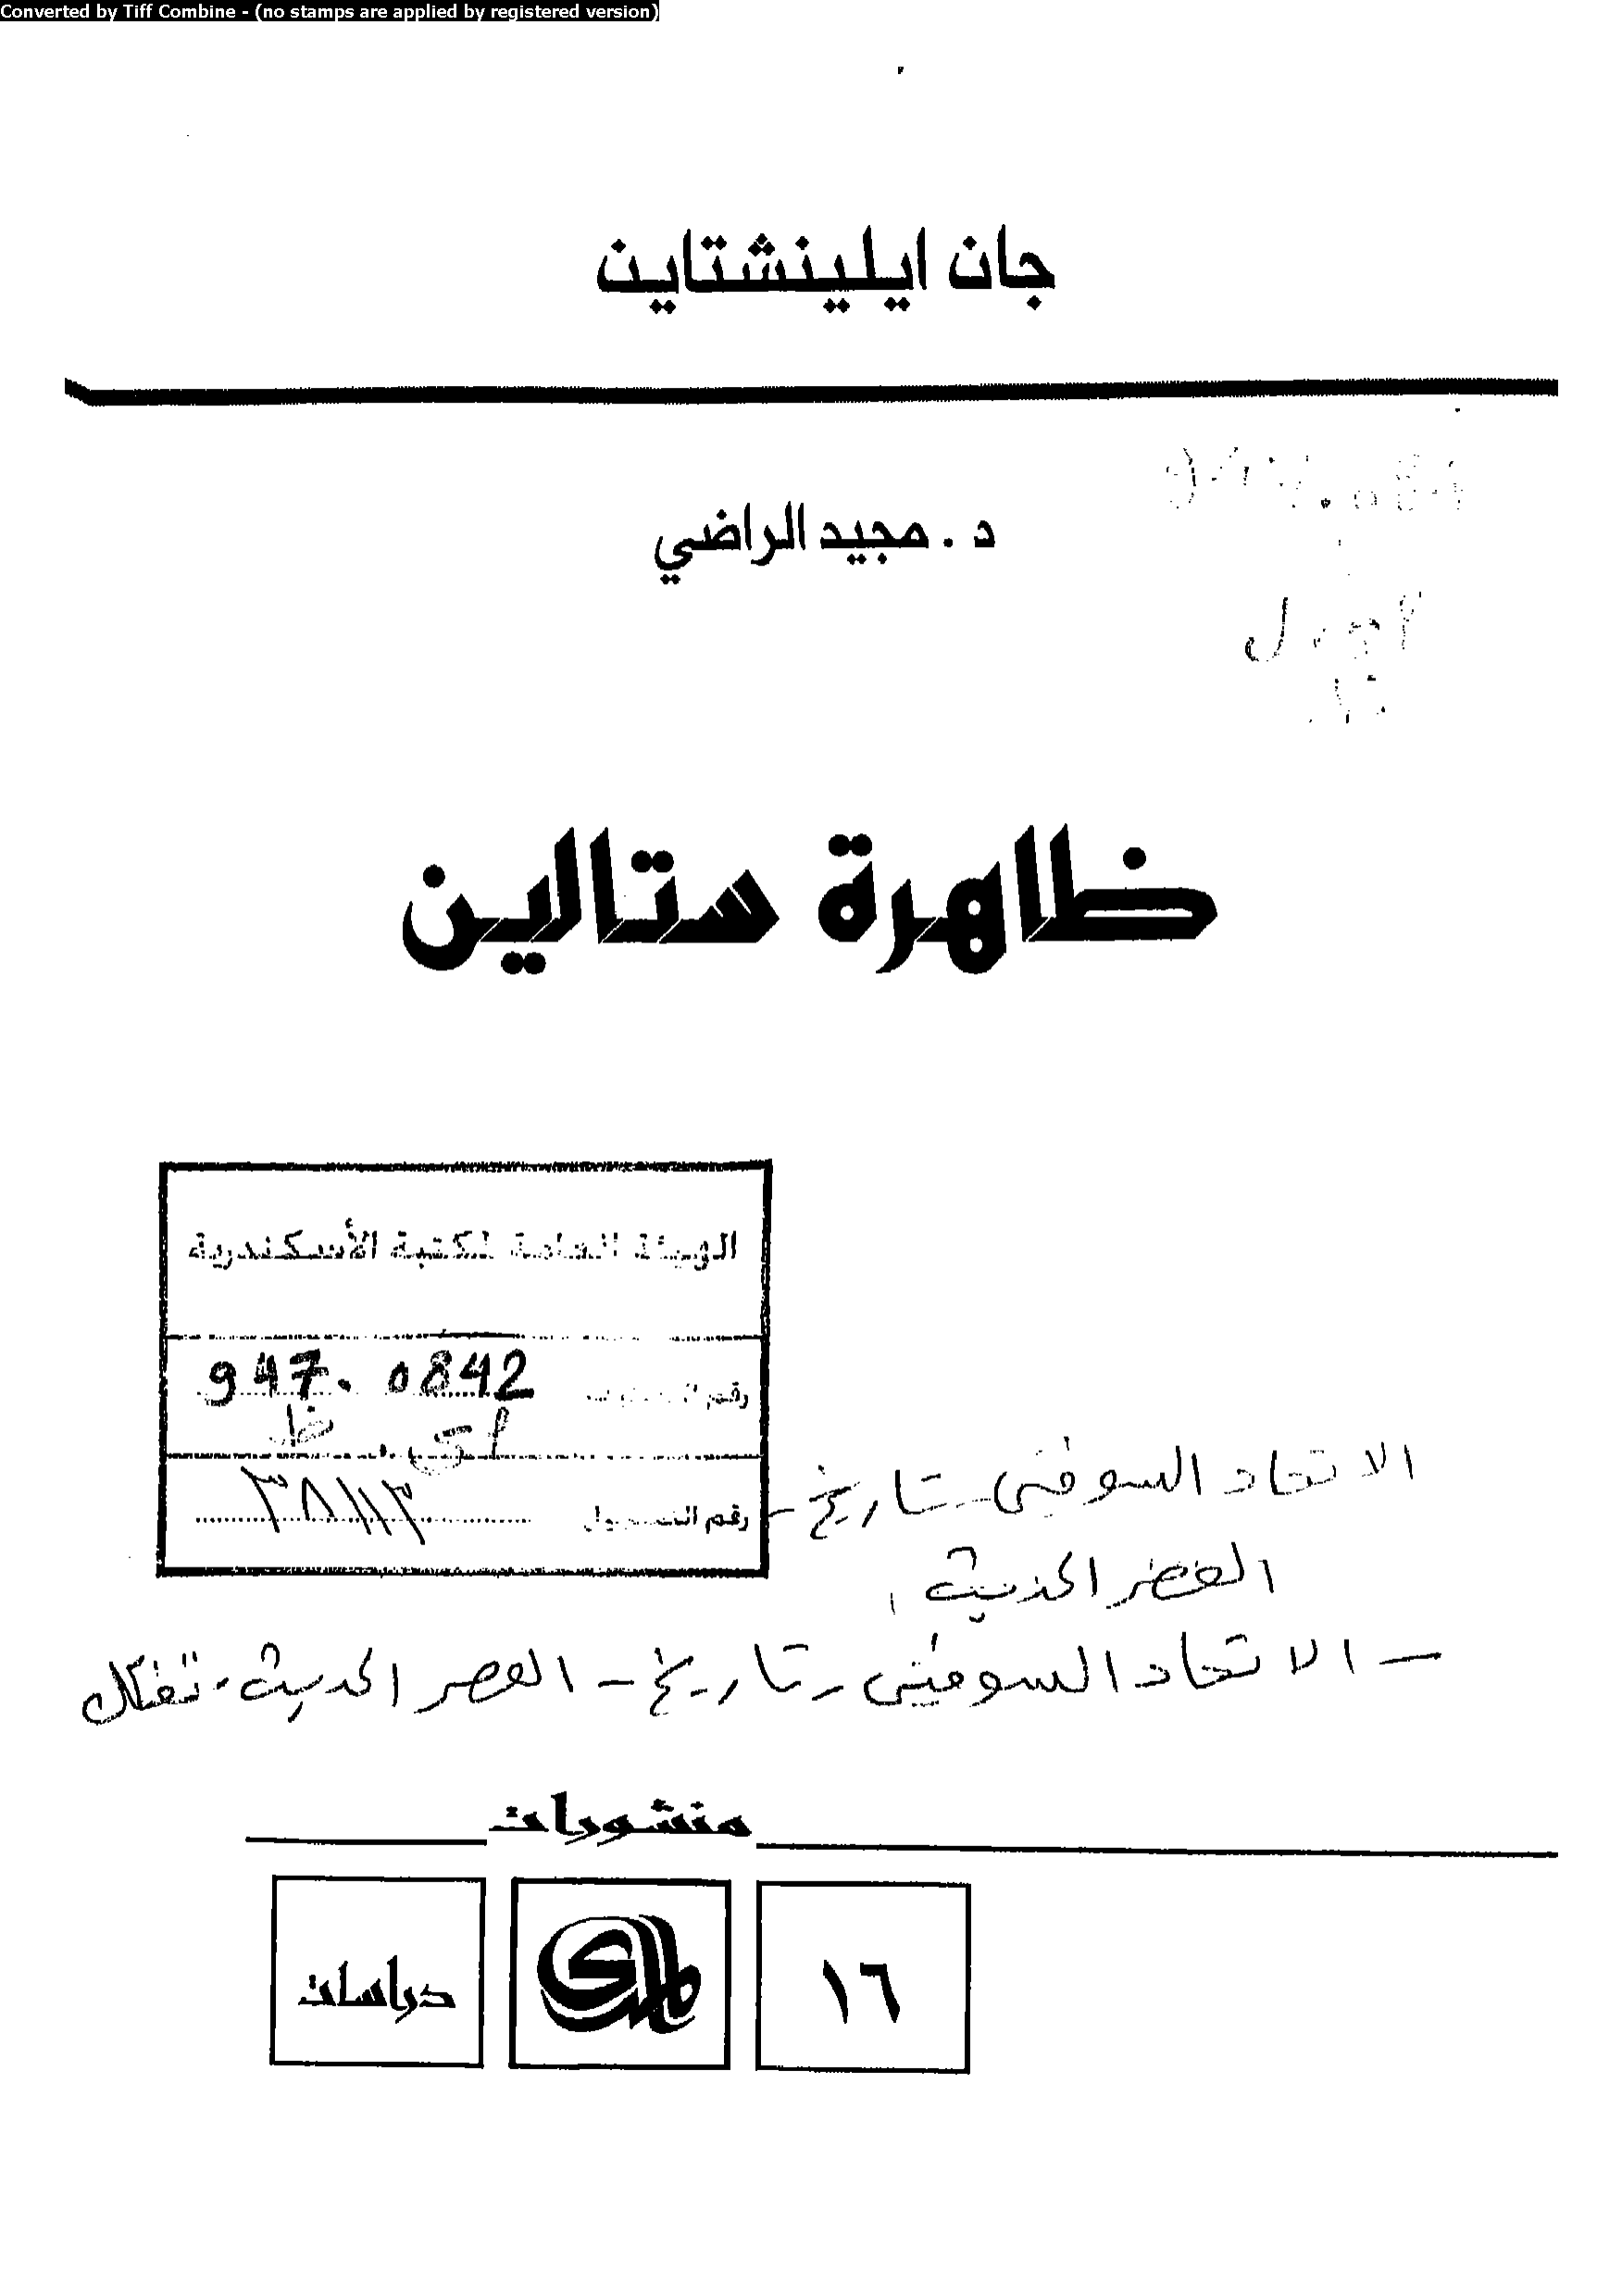 Converted by Tiff Combine - (no stamps are applied by registered version)
جان ايلينشتاين
د . مجيد الراضي
ظاهرة ستالين
الهيئة العامة لمكتبة الأسكندرية
947.0842
رقم
رقم التسجيل
٣٨١١٣
الاتحاد السوفيتى - تاريخ -
العصر الحديث
– الاتحاد السوفيتى - تاريخ - العصر الحديث -
منشورات
دراسات
المدى
١٦